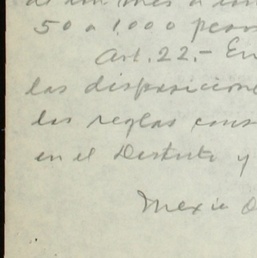 de un mes a
50 a 1000 pesos
Art. 22.- En
las disposicione
las reglas cons
en el Distrito y
Mexico D